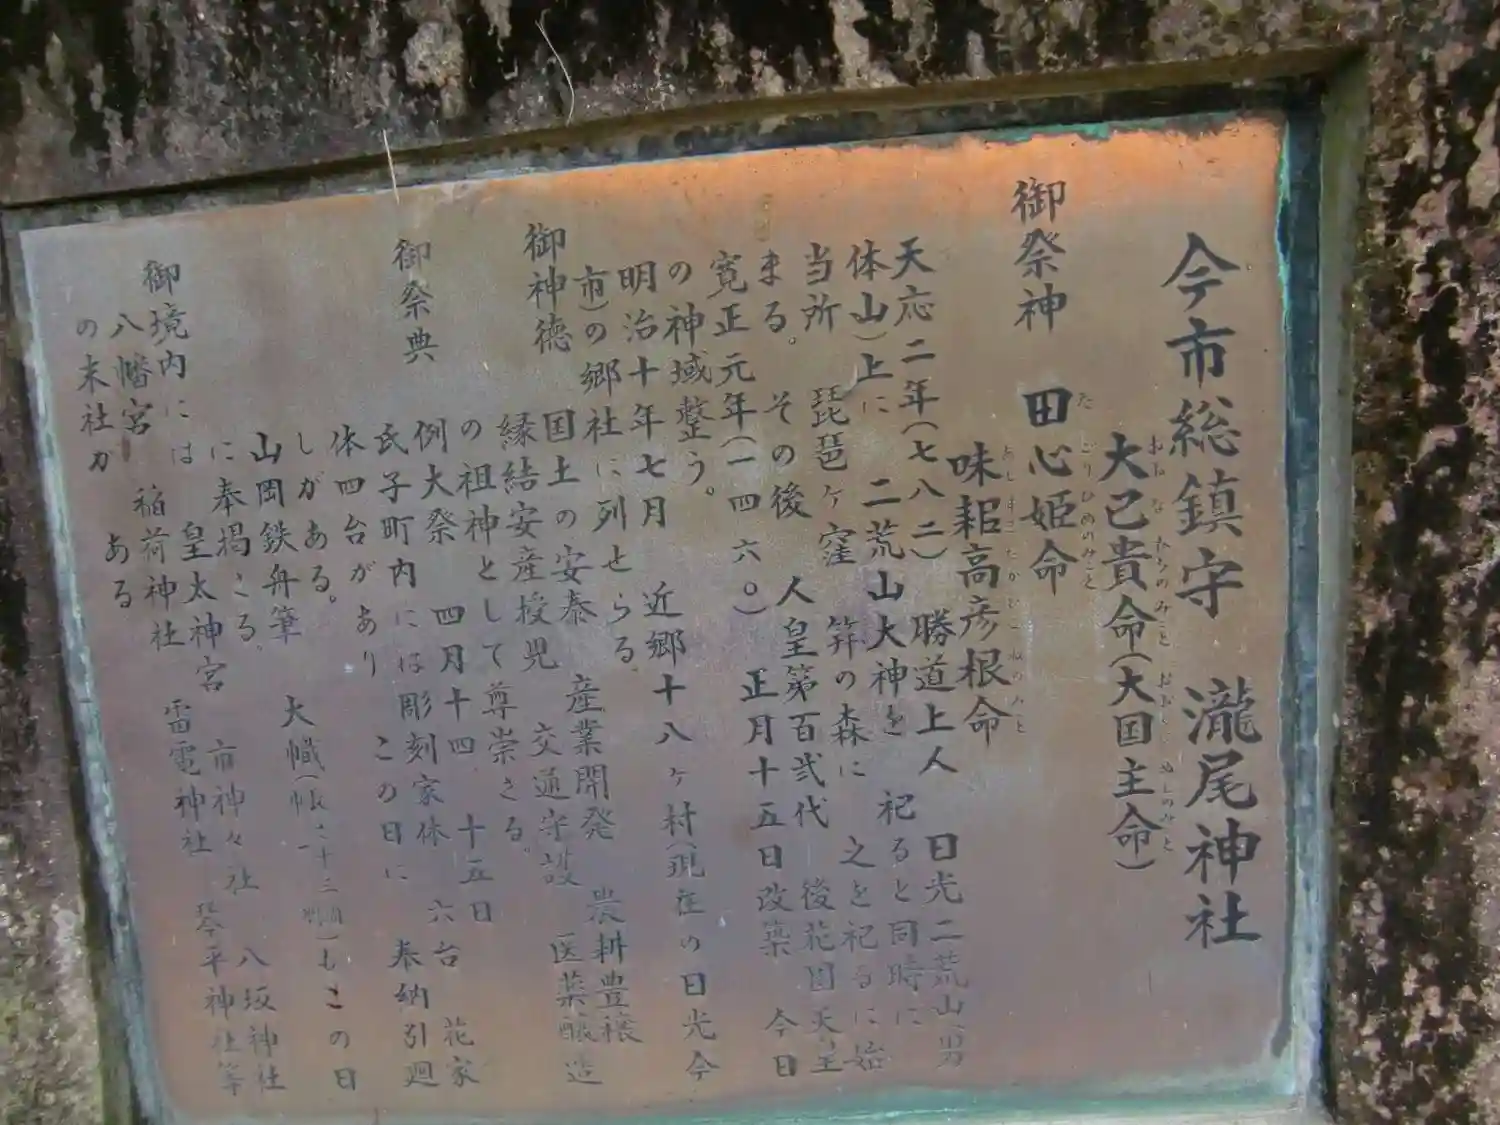 今市総鎮守　瀧尾神社
大己貴命(大国主命)
御祭神　田心姫命
味耜高彦根命
天応二年(七八二)　勝道上人　日光二荒山(男
体山)上に　二荒山大神を　祀ると同時に
当所　琵琶ヶ窪　笄の森に　之を祀るに始
まる。その後　人皇第百弐代　後花園天皇
寛正元年(一四六〇)　正月十五日改築　今日
の神域整う。
明治十年七月　近郷十八ヶ村(現在の日光今
市)の郷社に列せらる。
御神徳　国土の安泰　産業開発　農耕豊穣
縁結安産授児　交通守護　医薬醸造
の祖神として尊崇さる。
御祭典　例大祭　四月十四、十五日
氏子町内には彫刻家体　六台　花家
体四台があり　この日に　奉納引廻
しがある。
山岡鉄舟筆　大幟(　)もこの日
に奉掲さる。
御境内には　皇太神宮　市神々社　八坂神社
八幡宮　稲荷神社　雷電神社　琴平神社等
の末社が　ある